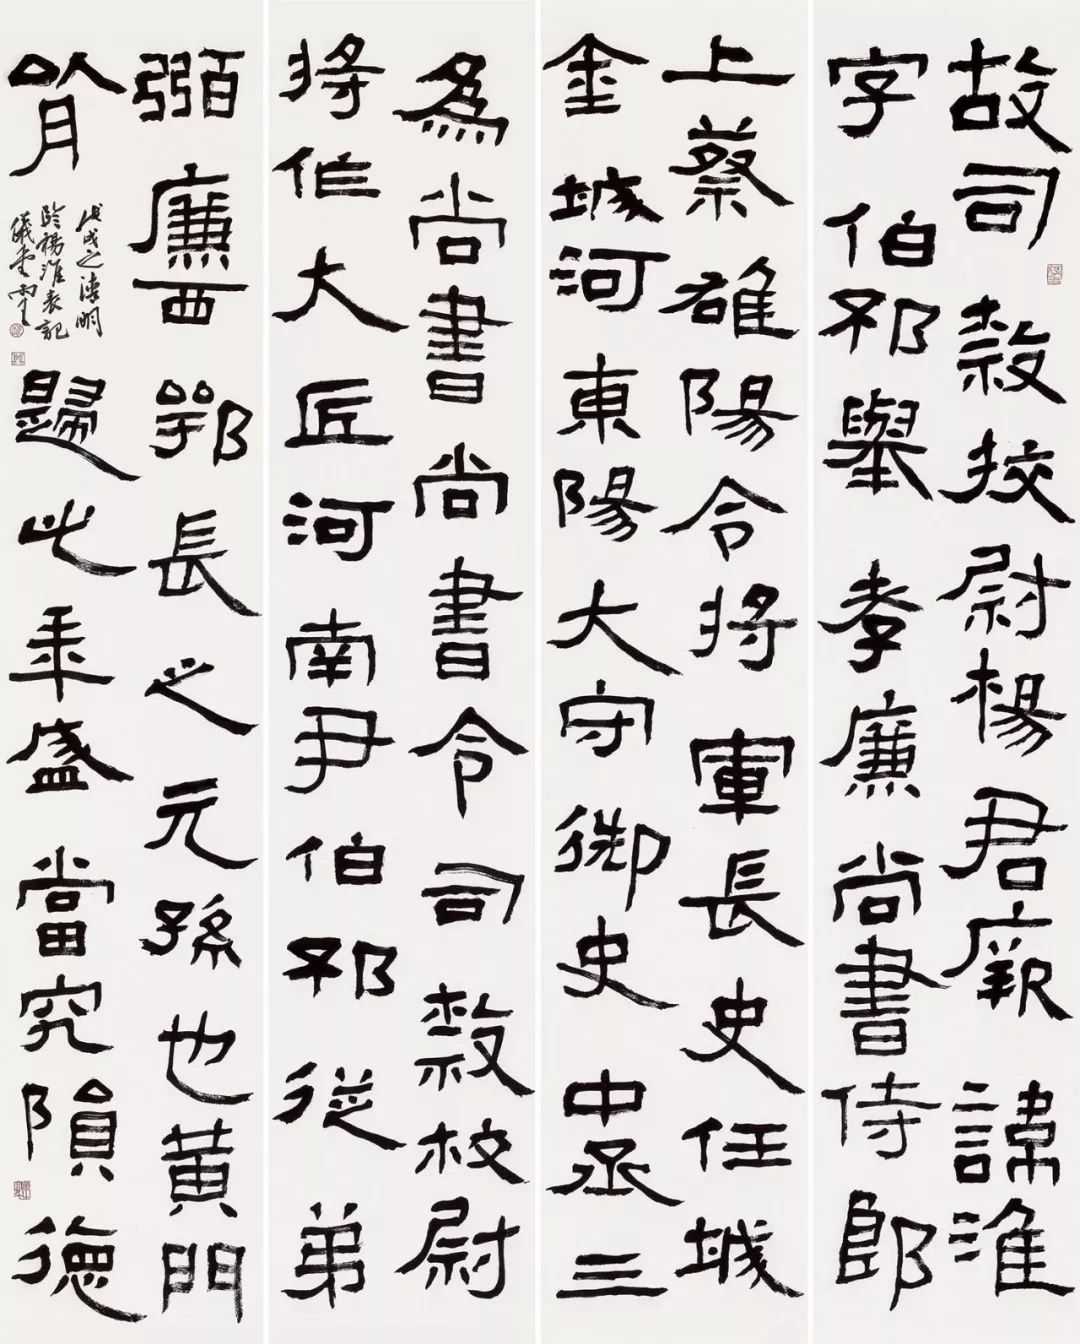 故司隸挍尉楊君厥諱淮
字伯邳舉孝廉尚書侍郎
上蔡雒陽令將軍長史任城
金城河東陽大守御史中丞三
為尚書尚書令司隸校尉
將作大匠河南尹伯邳從弟
弼廉西鄂長之元孫也黃門
歸此牟盛當究隕德
戊戌之清明
臨楊淮表記